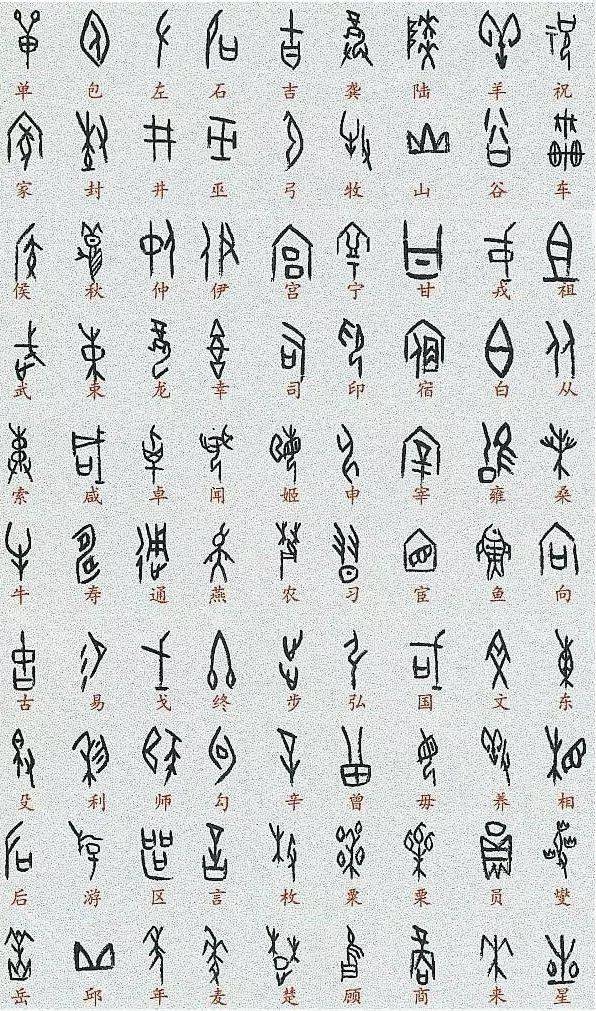 单 包 左 石 吉 龚 陆 羊 祝
家 封 井 巫 弓 牧 山 谷 车
侯 秋 仲 伊 宫 宁 甘 戎 祖
武 束 龙 幸 司 印 宿 白 从
索 咸 卓 闻 姬 申 宰 雍 桑
牛 寿 通 燕 农 习 宦 鱼 向
古 易 戈 终 步 弘 国 文 东
殳 利 师 勾 辛 曾 毋 养 相
后 游 区 言 枚 粟 栗 员 燮
岳 邱 年 麦 楚 顾 商 来 星